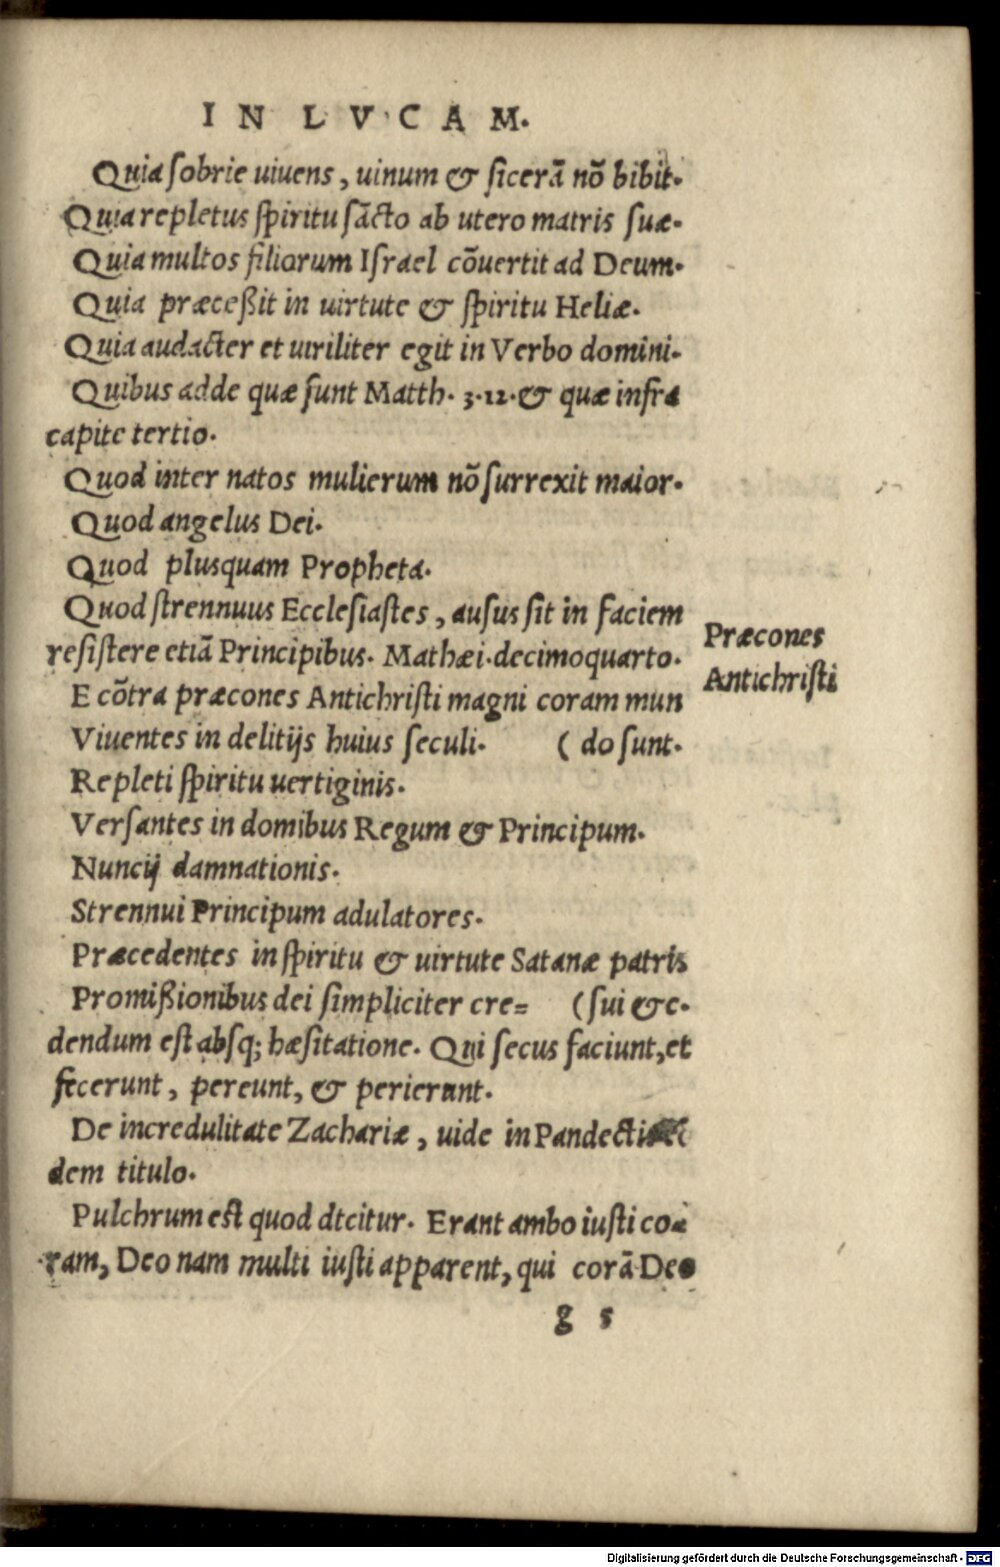 IN LVCAM.
Quia ſobrie uiuens, uinum & ſicerā nō bibit.
Quia repletus ſpiritu ſācto ab utero matris ſuæ.
Quia multos filiorum Iſrael cōuertit ad Deum.
Quia præceßit in uirtute & ſpiritu Heliæ.
Quia audacter et uiriliter egit in Verbo domini.
Quibus adde quæ ſunt Matth. 3.12.& quæ infra
capite tertio.
Quod inter natos mulierum nō ſurrexit maior.
Quod angelus Dei.
Quod plusquam Propheta.
Quod ſtrennuus Eccleſiaſtes, auſus ſit in faciem
reſiſtere etiā Principibus. Mathæi.decimoquarto.
Præcones
Antichriſti
E cōtra præcones Antichriſti magni coram mun
Viuentes in delitijs huius ſeculi. ( do ſunt.
Repleti ſpiritu uertiginis.
Verſantes in domibus Regum & Principum.
Nuncij damnationis.
Strennui Principum adulatores.
Præcedentes in ſpiritu & uirtute Satanæ patris
Promißionibus dei ſimpliciter cre= (ſui &c.
dendum eſt abſq; hæſitatione. Qui ſecus faciunt,et
fecerunt, pereunt, & perierunt.
De incredulitate Zachariæ, uide in
dem titulo.
Pulchrum eſt quod dtcitur. Erant ambo iuſti co=
ram, Deo nam multi iuſti apparent, qui corā Deo
g 5
Digitalisierung gefördert durch die Deutsche Forschungsgemeinschaft - DFG